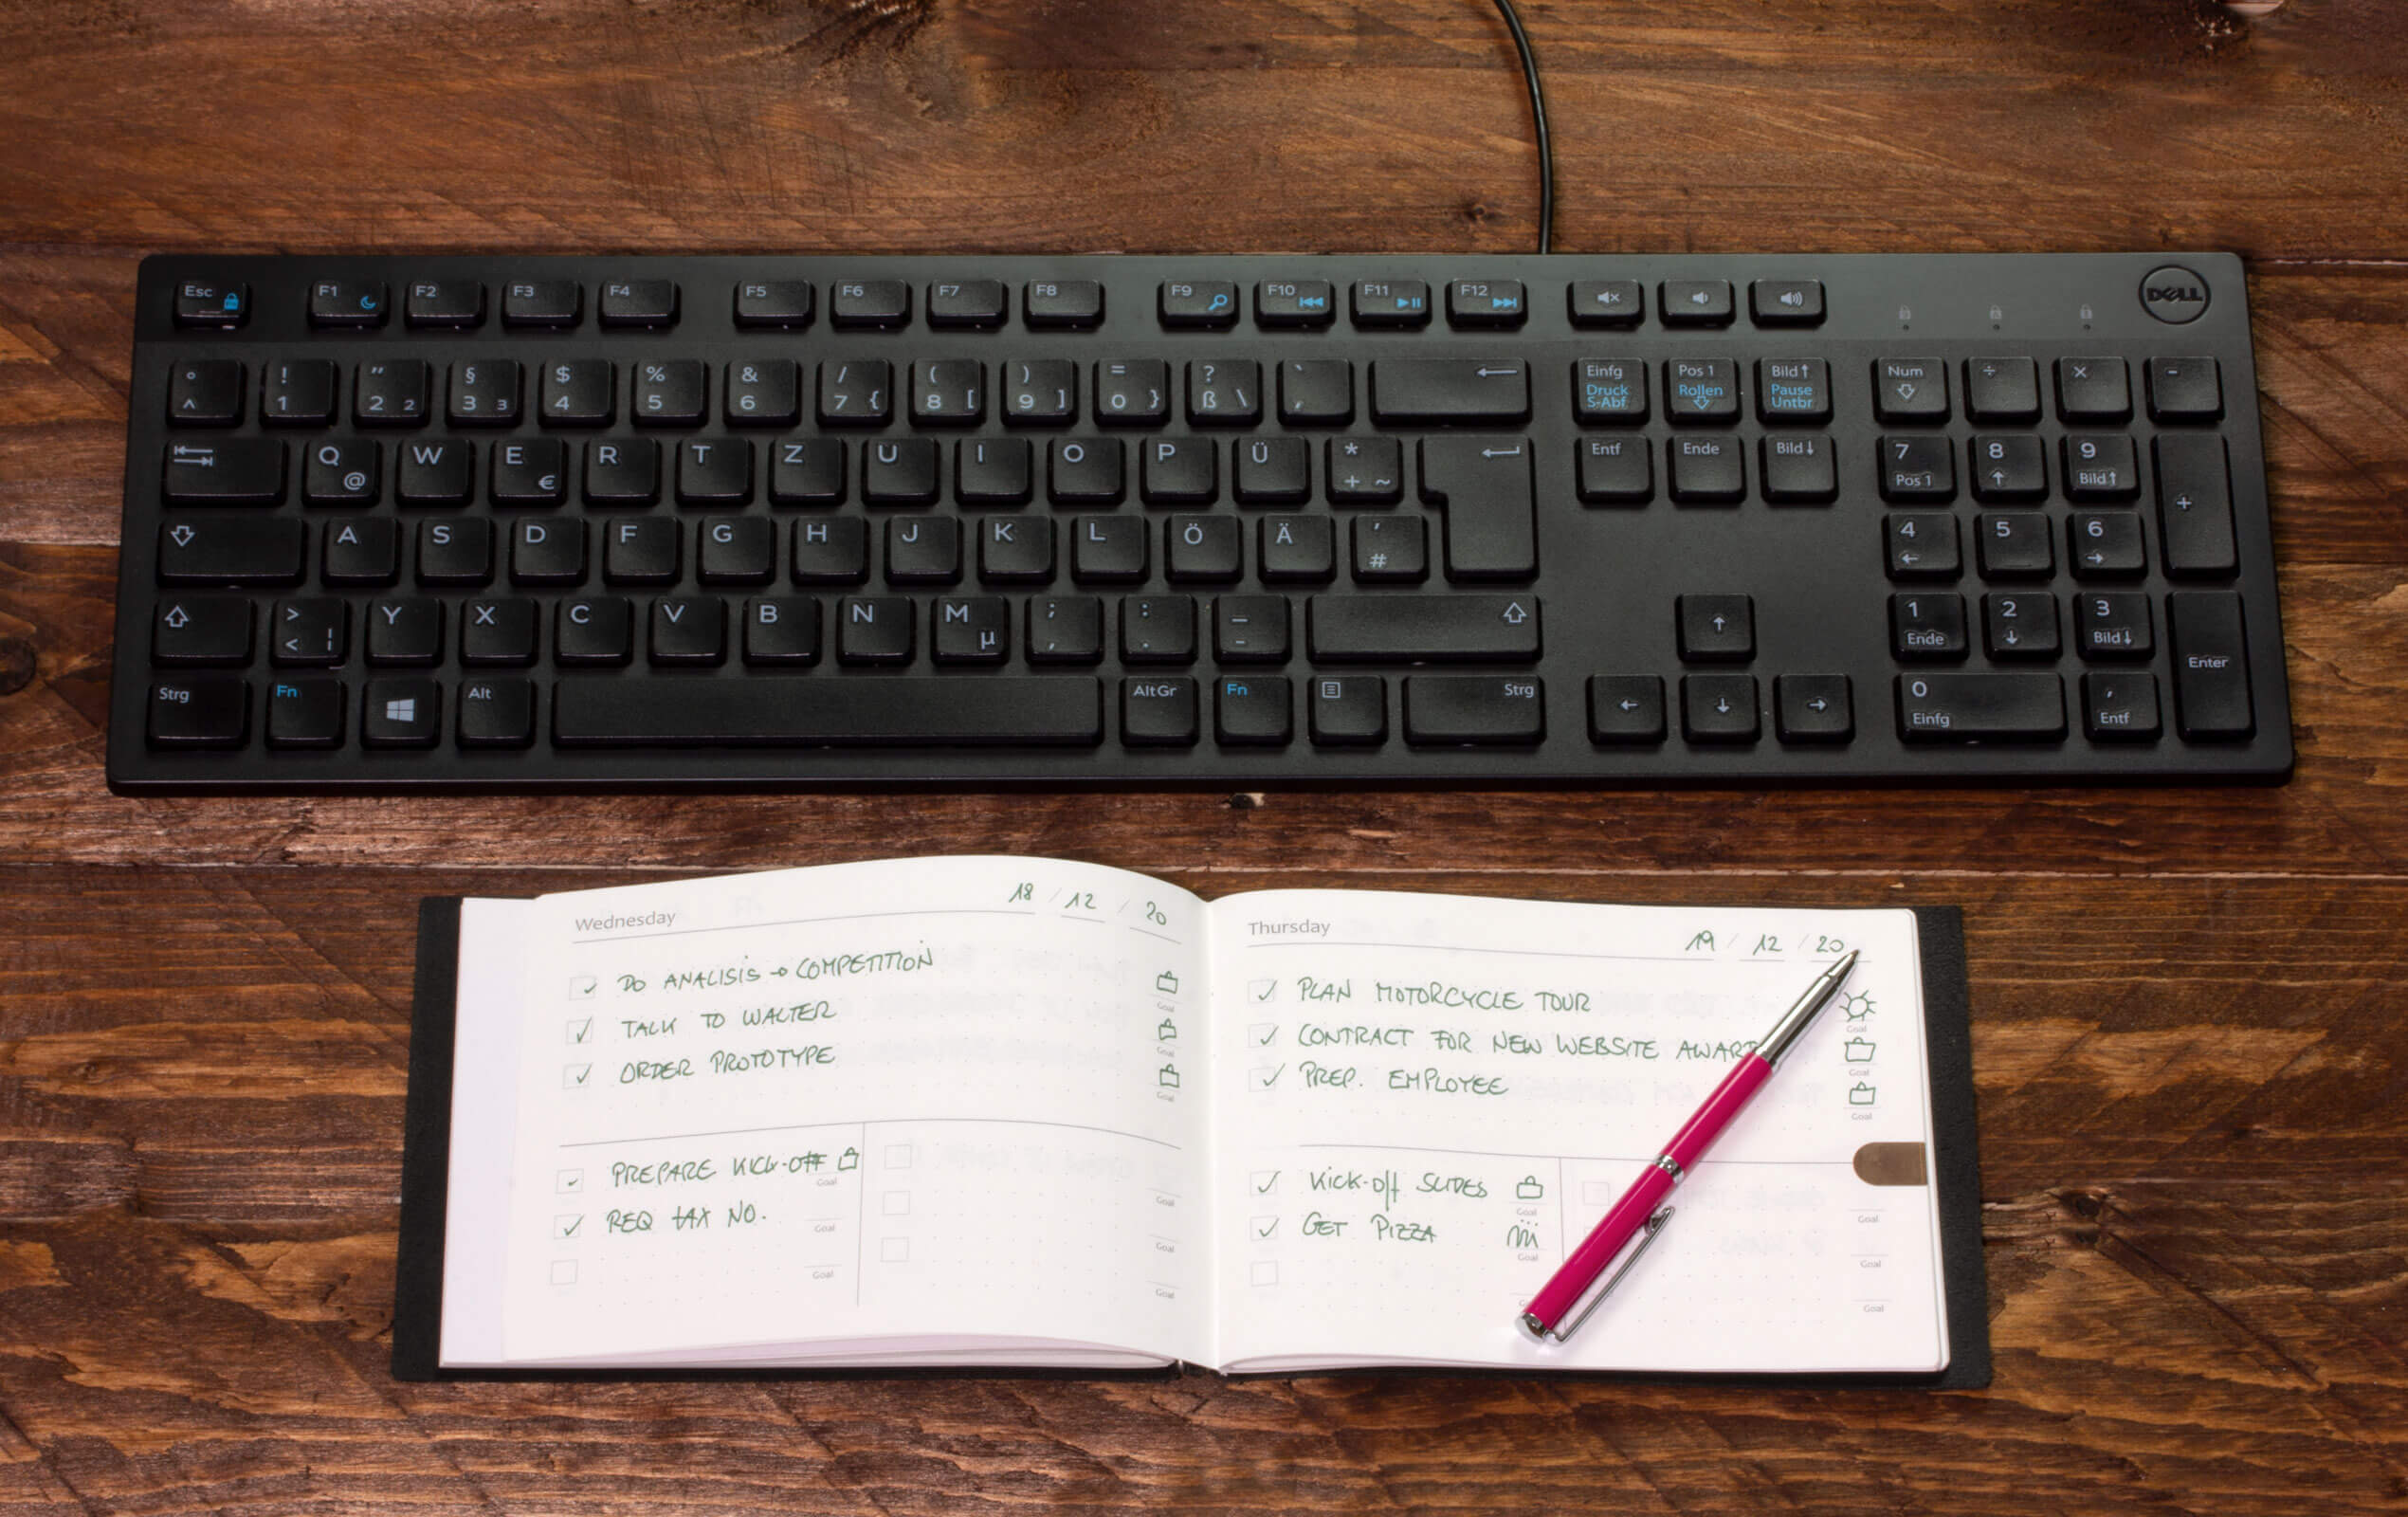 Esc F1 F2 F3 F4 F5 F6 F7 F8 F9 F10 F11 F12
DELL
° ! " § $ % & / ( ) = ? `
^ 1 2 2 3 3 4 5 6 7 { 8 [ 9 ] 0 } ß \ ´
Einfg Pos 1 Bild↑ Num ÷ × -
Druck Rollen Pause
S-Abf Untbr
Q W E R T Z U I O P Ü *
@ € + ~
Entf Ende Bild↓ 7 8 9
Pos 1 ↑ Bild↑ +
A S D F G H J K L Ö Ä '
#
4 5 6
← →
> Y X C V B N M ; : _
< ¦ µ , . -
↑ 1 2 3
Ende ↓ Bild↓
Enter
Strg Fn Alt Alt Gr Fn Strg
← ↓ → 0 ,
Einfg Entf
Wednesday 18 / 12 / 20
DO ANALISIS → COMPETITION
Goal
TALK TO WALTER
Goal
ORDER PROTOTYPE
Goal
PREPARE KICK-OFF
Goal
REQ TAX NO.
Goal Goal
Goal Goal
Goal
Thursday 19 / 12 / 20
PLAN MOTORCYCLE TOUR
Goal
CONTRACT FOR NEW WEBSITE
Goal
PREP. EMPLOYEE
Goal
KICK-OFF SLIDES
Goal Goal
GET PIZZA
Goal Goal
Goal